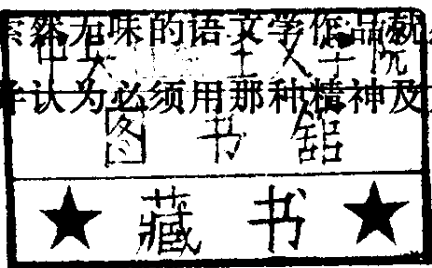 索然无味的语文学作品就
认为必须用那种精神及
图书馆
★ 藏书 ★